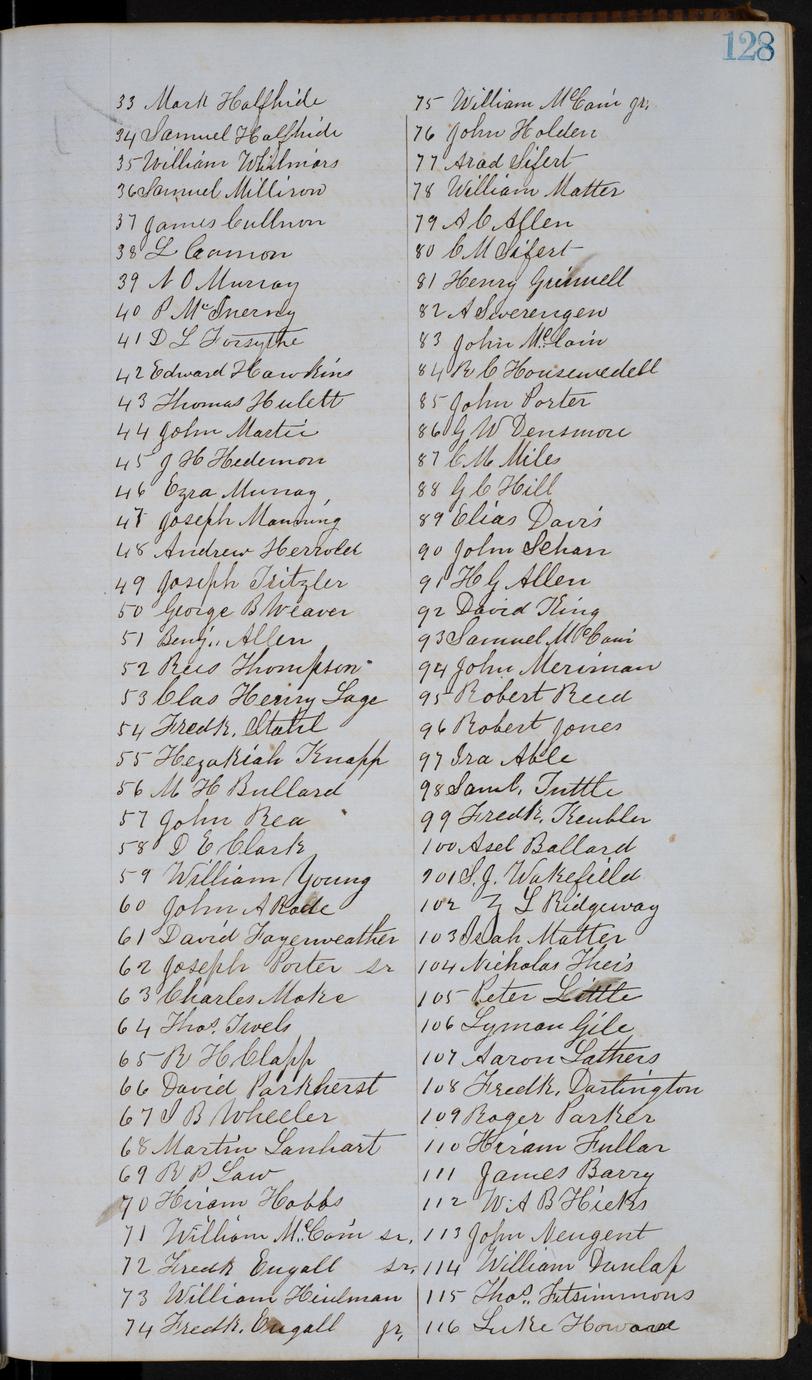 128
33 Mark Halfhide
34 Samuel Halfhide
35 William Whitmars
36 Samuel Milliron
37 James Cullnon
38 L Cannon
39 N O Murray
40 P McInerny
41 D L Forsythe
42 Edward Hawkins
43 Thomas Hulett
44 John Martin
45 J H Hedemon
46 Ezra Murray,
47 Joseph Manning
48 Andrew Herrold
49 Joseph Tritzler
50 George B Weaver
51 Benj. Allen
52 Rees Thompson
53 Clas Henry Sage
54 Fredk. Stahl
55 Hezakiah Knapp
56 M H Bullard
57 John Rea
58 D E Clark
59 William Young
60 John A Rade
61 David Fayerweather
62 Joseph Porter sr
63 Charles Moke
64 Thos. Twels
65 R H Clapp
66 David Parkherst
67 S B Wheeler
68 Martin Lanhart
69 R P Law
70 Hiram Hobbs
71 William McCain sr.
72 Fredk Engall sr.
73 William Hinlman
74 Fredk. Engall jr,
75 William McCain jr.
76 John Holden
77 Arad Sifert
78 William Matter
79 A C Allen
80 C M Sifert
81 Henry Grinnell
82 A Swerengen
83 John McCain
84 R C Housewedell
85 John Porter
86 G W Densmore
87 C M Miles
88 G C Hill
89 Elias Davis
90 John Scharr
91 H G Allen
92 David King
93 Samuel McCain
94 John Meriman
95 Robert Reed
96 Robert Jones
97 Ira Able
98 Saml. Tuttle
99 Fredk. Keubler
100 Asel Ballard
101 S. J. Wakefield
102 Z L Ridgeway
103 Isah Matter
104 Nicholas Theis
105 Peter Little
106 Lyman Gile
107 Aaron Lathers
108 Fredk. Dartington
109 Roger Parker
110 Hiram Fullar
111 James Barry
112 W. A B Hicks
113 John Neugent
114 William Dunlap
115 Thos. Fitsimmons
116 Luke Howard